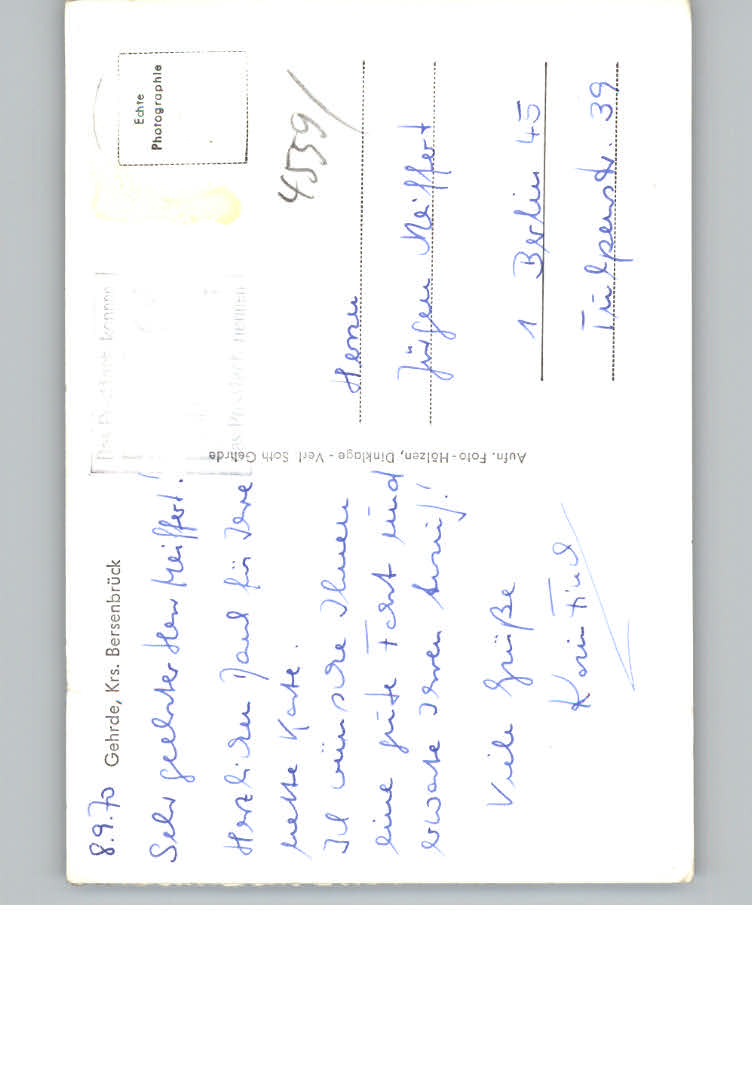 8.9.70 Gehrde, Krs. Bersenbrück
Sehr geehrter Herr Meiffert!
Herzlichen Dank für Ihre
nette Karte.
Ich wünsche Ihnen
eine gute Fahrt und
erwarte Ihren
Viele Grüße
Karin
Aufn. Foto-Hölzen, Dinklage - Verl. Soth Gehrde
Echte
Photographie
4559/
Herrn
Jürgen Meiffert
1 Berlin 45
Tulpenstr. 39